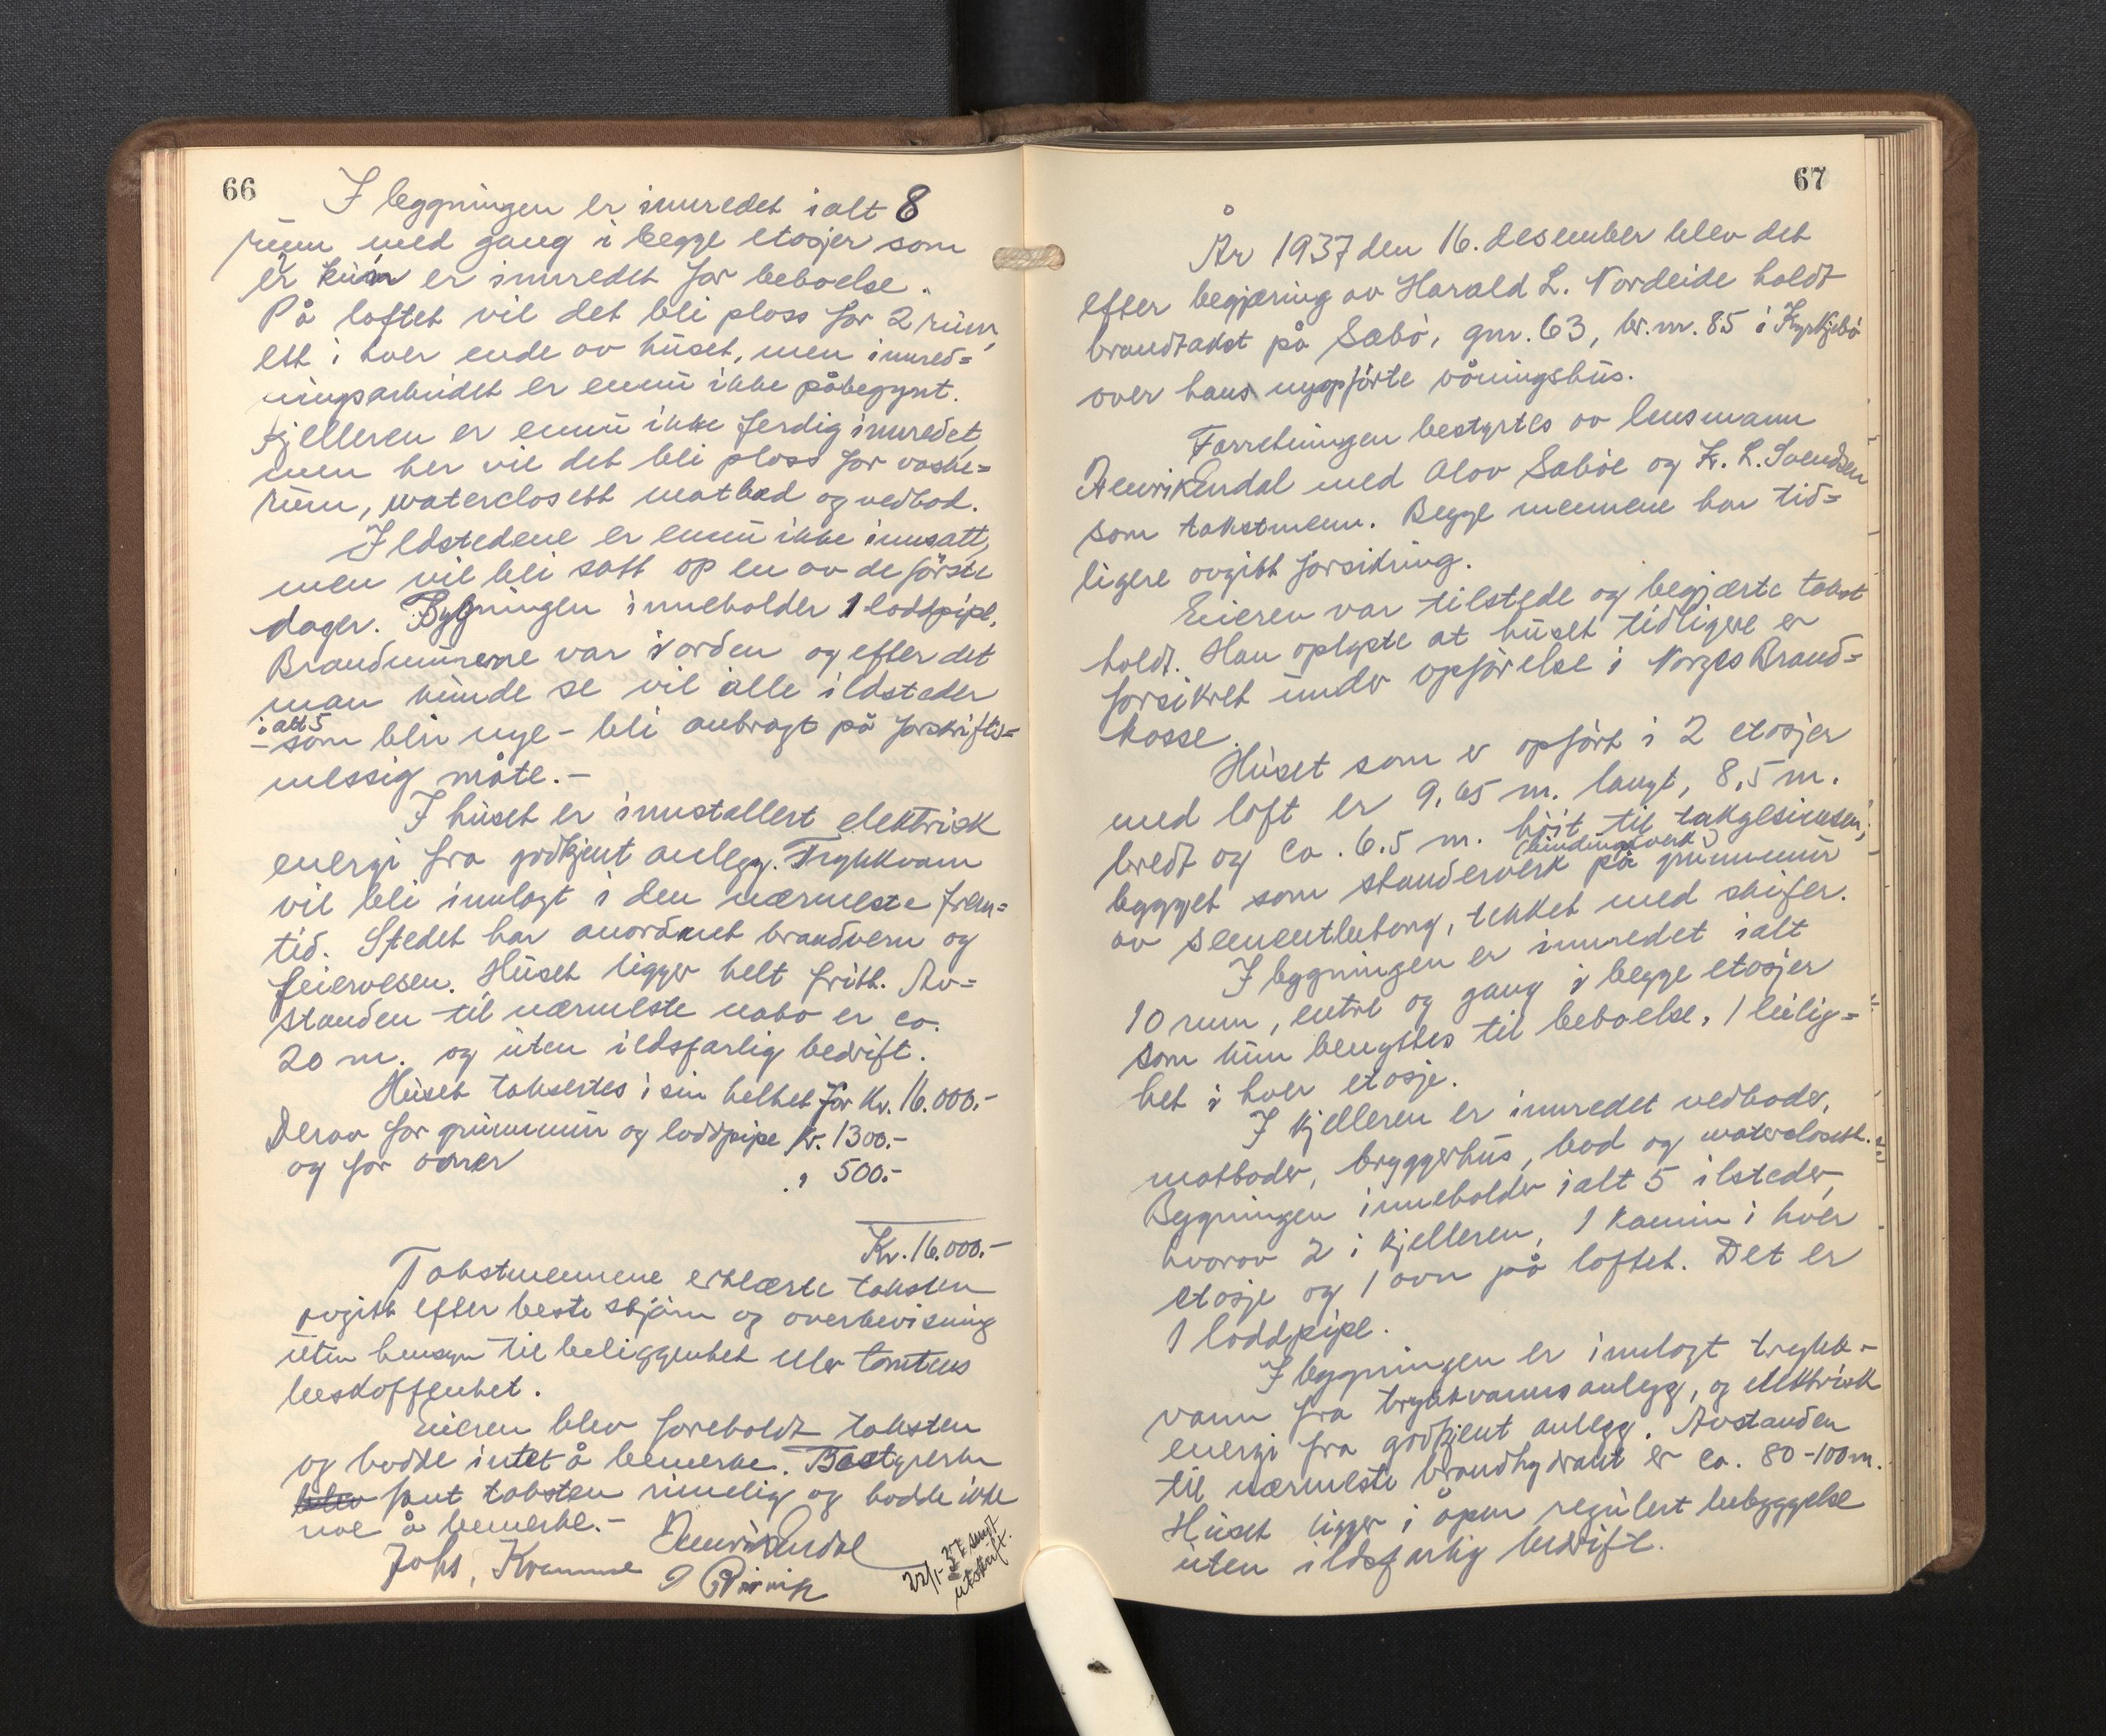 66
I bygningen er innredet ialt 8
rum med gang i begge etasjer som
er kun er innredet for beboelse.
På loftet vil det bli plass for 2 rum,
ett i hver ende av huset, men innred=
ningsarbeidet er ennu ikke påbegynt.
Kjelleren er ennu ikke ferdig innredet,
men her vil det bli plass for vaske=
rum, waterclosett matbod og vedbod.
Ildstedene er ennu ikke innsatt,
men vil bli satt op en av de første
dager. Bygningen inneholder 1 loddpipe.
Brandmurene var i orden og efter det
man kunde se vil alle ildsteder
i alt 5
- som blir nye - bli anbragt på forskrifts=
messig måte.-
I huset er innstallert elektrisk
energi fra godkjent anlegg. Trykkvann
vil bli innlagt i den nærmeste frem=
tid. Stedet har anordnet brandvern og
feiervesen. Huset ligger helt fritt. Av=
standen til nærmeste nabo er ca.
20 m. og uten ildsfarlig bedrift.
Huset takseres i sin helhet for kr. 16.000.-
Derav for grunnmur og loddpipe kr. 1300.-
og for ovner
" 500.-
Kr. 16.000.-
Takstmennene erklærte taksten
avgitt efter beste skjønn og overbevisning
uten hensyn til beliggenhet eller tomtens
beskaffenhet.
Eieren blev foreholdt taksten
og hadde intet å bemerke. Bestyreren
blev fant taksten rimelig og hadde ikke
noe å bemerke.-
Henrik Endal
Johs. Kvamme
22/1-37 sendt
utskrift.
67
År 1937 den 16. desember blev det
efter begjæring av Harald L. Nordeide holdt
brandtakst på Sæbø, gnr. 63, br.nr. 85 i Kyrkjebø
over hans nyopførte våningshus.
Forretningen bestyrtes av lensmann
Henrik Endal med Olav Sæbøe og Kr. L. Svendsen
som takstmenn. Begge mennene har tid=
ligere avgitt forsikring.
Eieren var tilstede og begjærte takst
holdt. Han oplyste at huset tidligere er
forsikret under opførelse i Norges Brand=
kasse.
Huset som er opført i 2 etasjer
med loft er 9,65 m. langt, 8,5 m.
bredt og ca. 6.5 m. høit til takgesimsen;
(bindingsverk)
bygget som standerverk på grunnmur
av sementbetong, tekket med skifer.
I bygningen er innredet ialt
10 rum, entre og gang i begge etasjer
som kun benyttes til beboelse, 1 leilig=
het i hver etasje.
I kjelleren er innredet vedboder,
matboder, bryggerhus, bod og waterclosett.
Bygningen inneholder ialt 5 ilsteder,
hvorav 2 i kjelleren, 1 kamin i hver
etasje og 1 ovn på loftet. Det er
1 loddpipe.
I bygningen er innlagt trykk-
vann fra trykkvannsanlegg, og elektrisk
energi fra godkjent anlegg. Avstanden
til nærmeste brandhydrant er ca. 80-100m.
Huset ligger i åpen regulert bebyggelse
uten ildsfarlig bedrift.